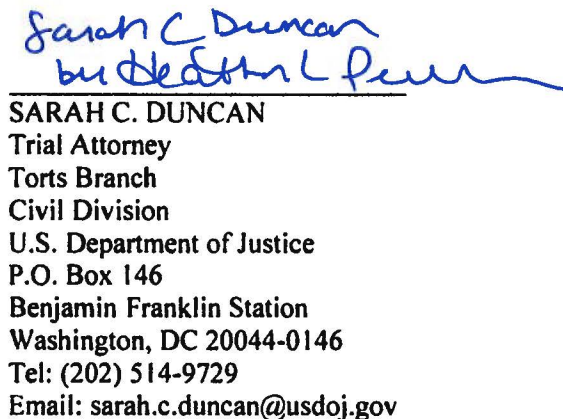 Sarah C Duncan
by Heather L
SARAH C. DUNCAN
Trial Attorney
Torts Branch
Civil Division
U.S. Department of Justice
P.O. Box 146
Benjamin Franklin Station
Washington, DC 20044-0146
Tel: (202) 514-9729
Email: sarah.c.duncan@usdoj.gov